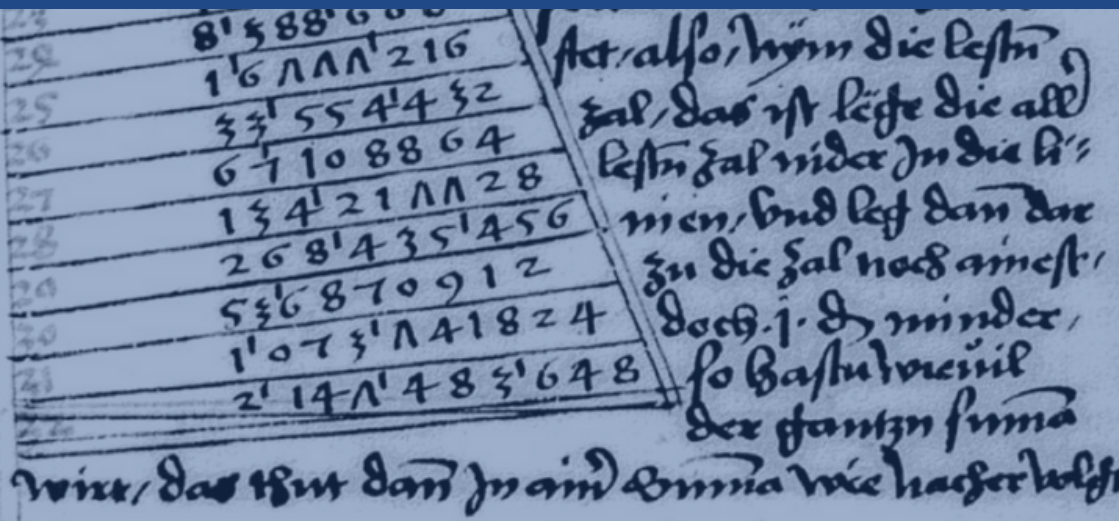 24 8'388'608
25 1'6777'216
26 33'554'432
27 67108864
28 134'217728
29 268'435'456
30 53'6870912
31 1'073'741824
32 2'147'483'648
stet, also, Nÿm die lestn̄
zal, das ist lege die all
lestn̄ zal nider In die li=
nien, vnd leg dan̄ dar
zu die zal noch ainest,
doch .j. d minder,
so hastu wieuil
der gantzn sum̄a
wirt, das thut dan̄ In ain Sum̄a wie hacher volgt